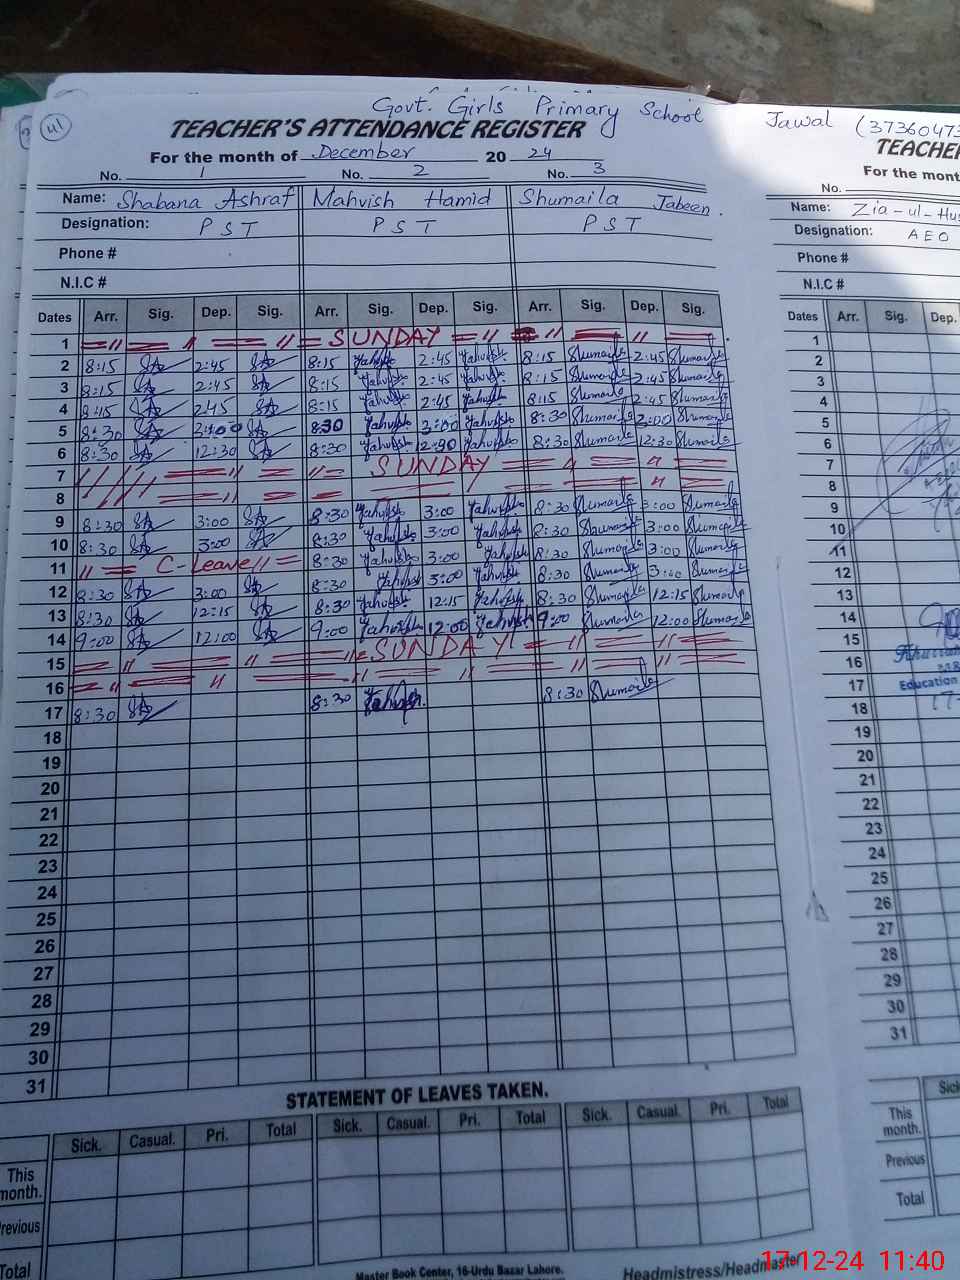 41
Govt. Girls Primary School Jawal (3736047
TEACHER'S ATTENDANCE REGISTER
For the month of December 20 24
No. 1 No. 2 No. 3
Name: Shabana Ashraf Mahvish Hamid Shumaila Jabeen.
Designation: PST PST PST
Phone #
N.I.C #
Dates Arr. Sig. Dep. Sig. Arr. Sig. Dep. Sig. Arr. Sig. Dep. Sig.
1 SUNDAY
2 8:15 SA 2:45 SA 8:15 2:45 8:15 Shumaila 2:45 Shumaila
3 8:15 SA 2:45 SA 8:15 2:45 8:15 Shumaila 2:45 Shumaila
4 8:15 SA 2:45 SA 8:15 2:45 8:15 Shumaila 2:45 Shumaila
5 8:30 SA SA 8:30 3:00 8:30 Shumaila 3:00 Shumaila
6 8:30 SA 12:30 SA 8:30 12:30 8:30 Shumaila 12:30 Shumaila
7 SUNDAY
8
9 8:30 SA 3:00 SA 8:30 3:00 8:30 Shumaila 3:00 Shumaila
10 8:30 SA 3:00 SA 8:30 3:00 8:30 Shumaila 3:00 Shumaila
11 C-Leave 8:30 3:00 8:30 Shumaila 3:00 Shumaila
12 8:30 SA 3:00 SA 8:30 3:00 8:30 Shumaila 3:00 Shumaila
13 8:30 SA 12:15 SA 8:30 12:15 8:30 Shumaila 12:15 Shumaila
14 9:00 SA 12:00 SA 9:00 12:00 9:00 Shumaila 12:00 Shumaila
15 SUNDAY
16
17 8:30 SA 8:30 8:30 Shumaila
18
19
20
21
22
23
24
25
26
27
28
29
30
31
STATEMENT OF LEAVES TAKEN.
Sick. Casual. Pri. Total Sick. Casual. Pri. Total Sick. Casual. Pri. Total
This month.
Previous
Total
Master Book Center, 16-Urdu Bazar Lahore.
Headmistress/Headmaster
TEACHER
For the mont
No.
Name: Zia-ul-Hus
Designation: AEO
Phone #
N.I.C #
Dates Arr. Sig. Dep.
1
2
3
4
5
6
7
8
9
10
11
12
13
14
15
16
17 Education
18
19
20
21
22
23
24
25
26
27
28
29
30
31
Sick
This month.
Previous
Total
17-12-24 11:40